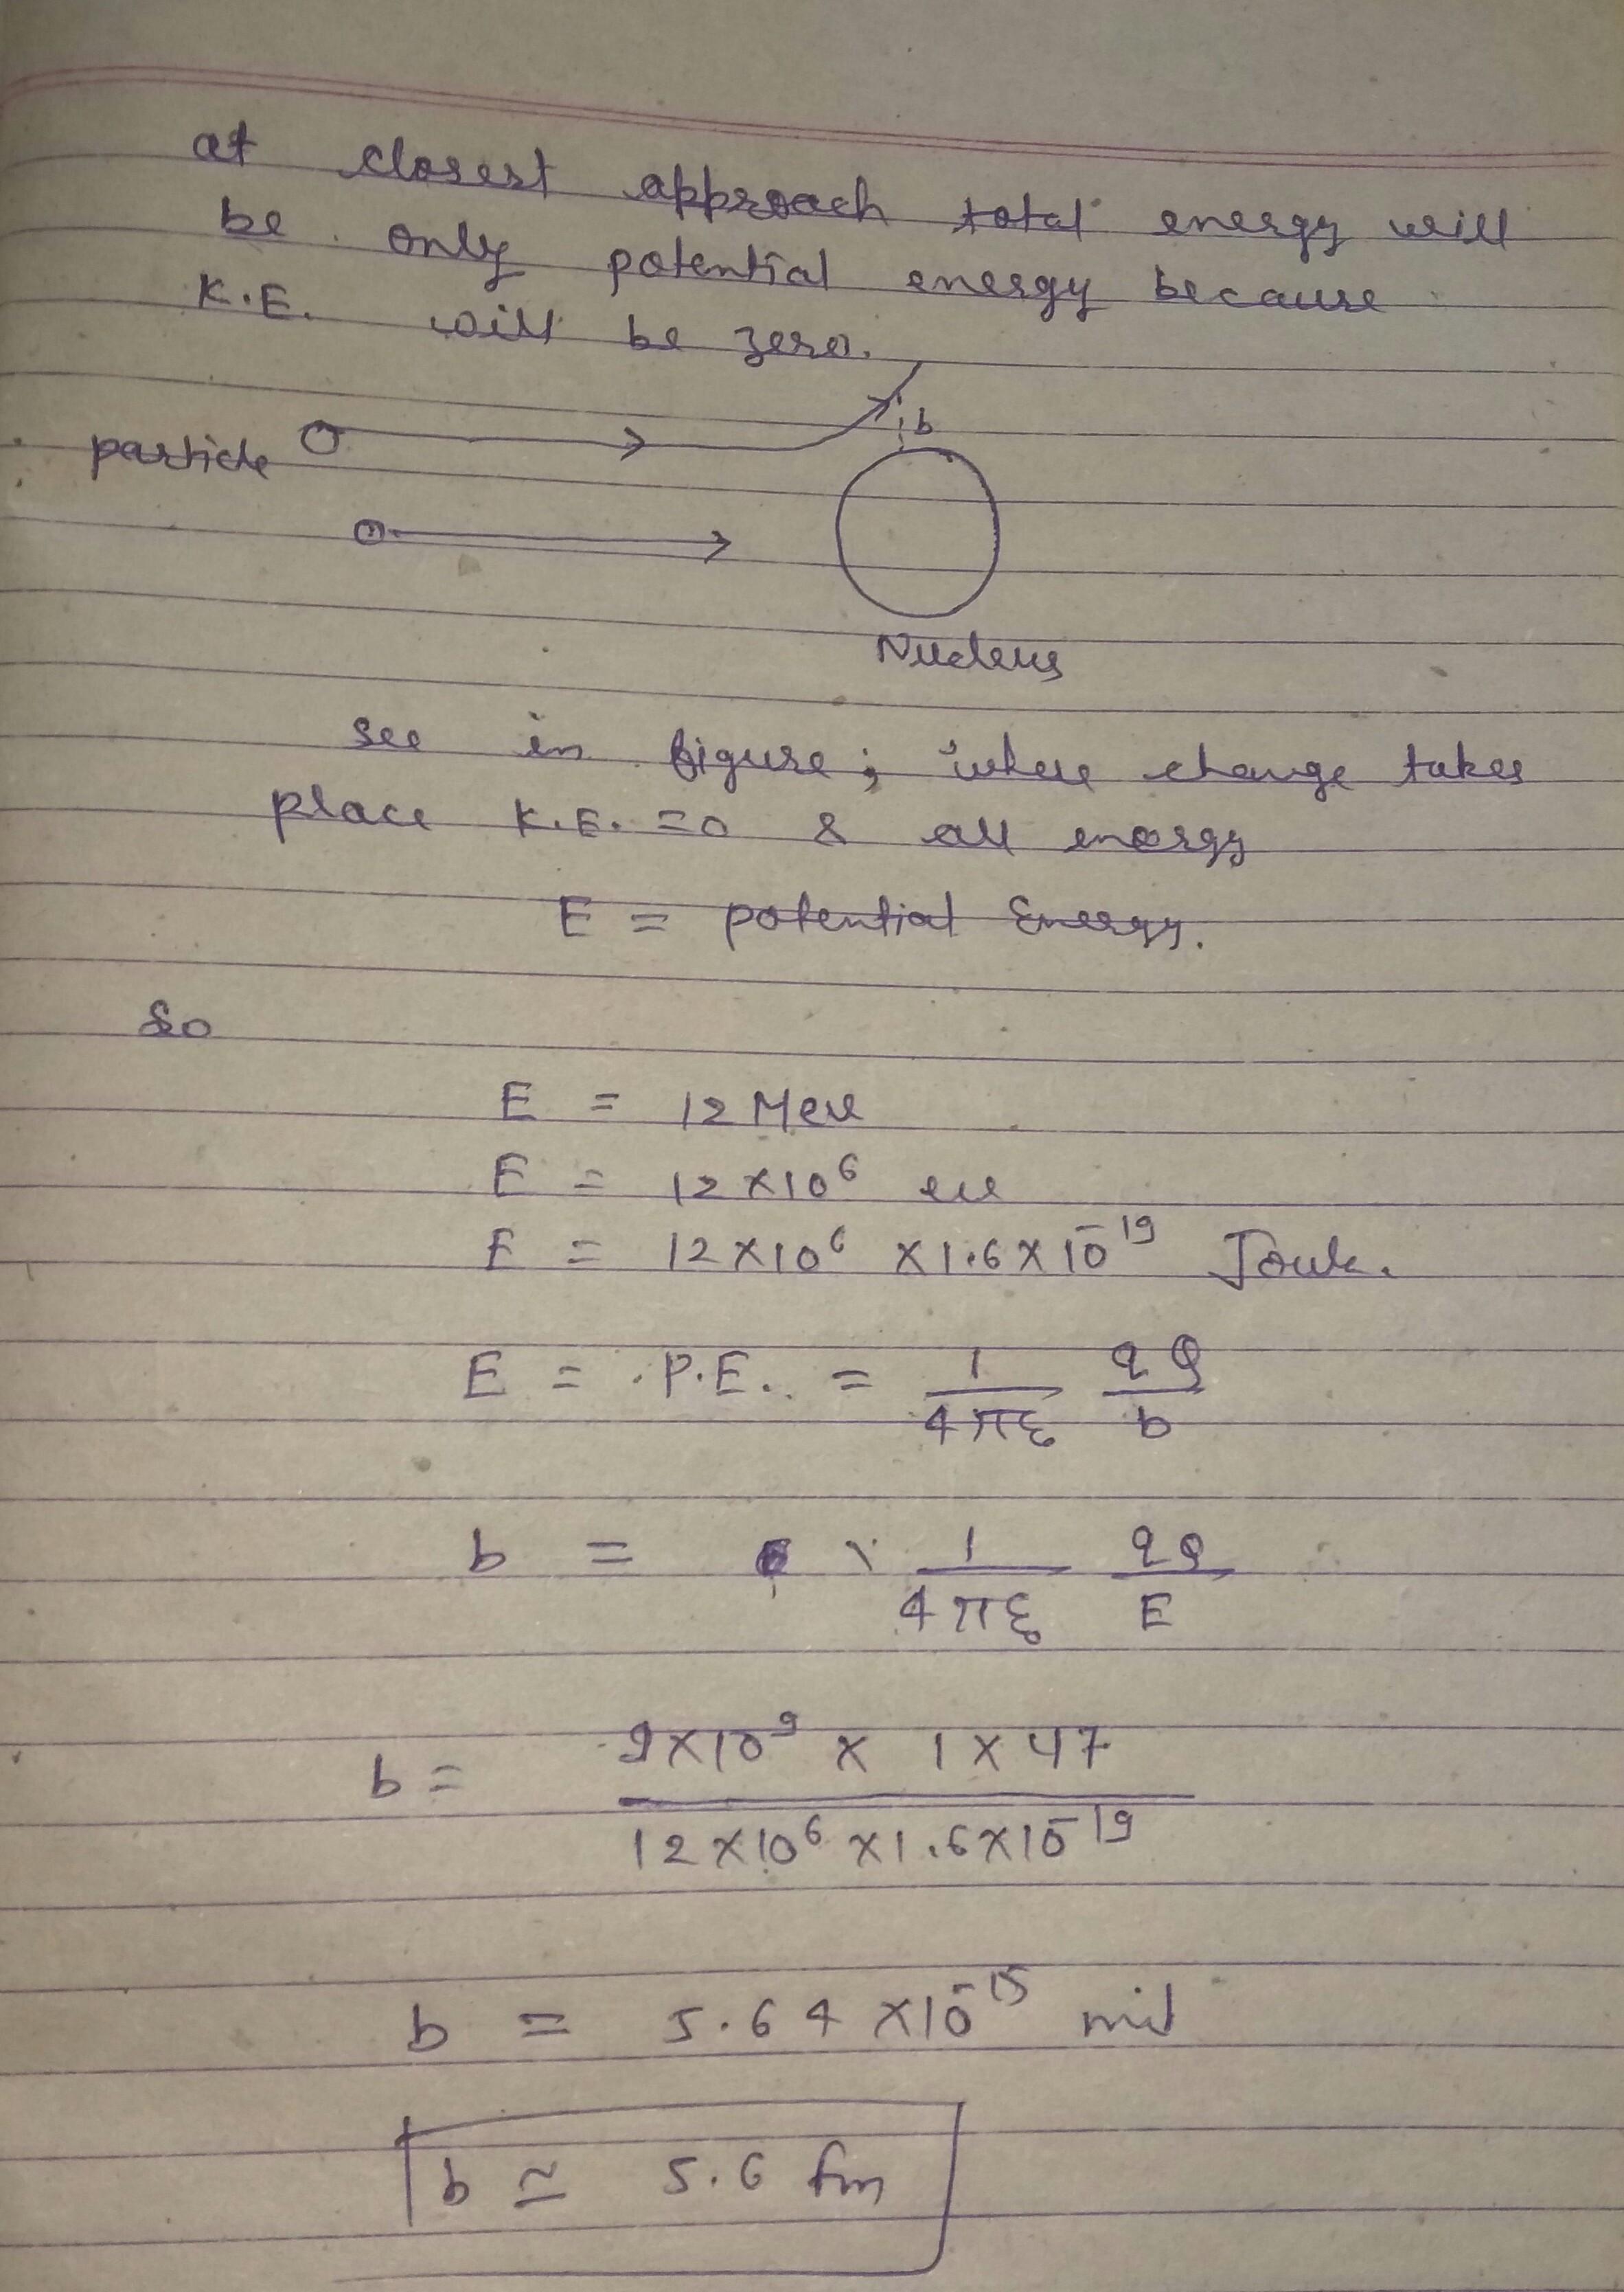 at closest approach total energy will
be only potential energy because
K.E. will be zero.
b
particle
Nucleus
see in figure; where change takes
place K.E. = 0 & all energy
E = potential Energy.
So
E = 12 Mev
E = 12 × 10⁶ ev
E = 12 × 10⁶ × 1.6 × 10⁻¹⁹ Joule.
E = P.E. = 1/4πε₀ qQ/b
b = 1/4πε₀ qQ/E
b = 9×10⁹ × 1 × 47 / 12×10⁶ × 1.6×10⁻¹⁹
b = 5.64 × 10⁻¹⁵
b ≃ 5.6 fm